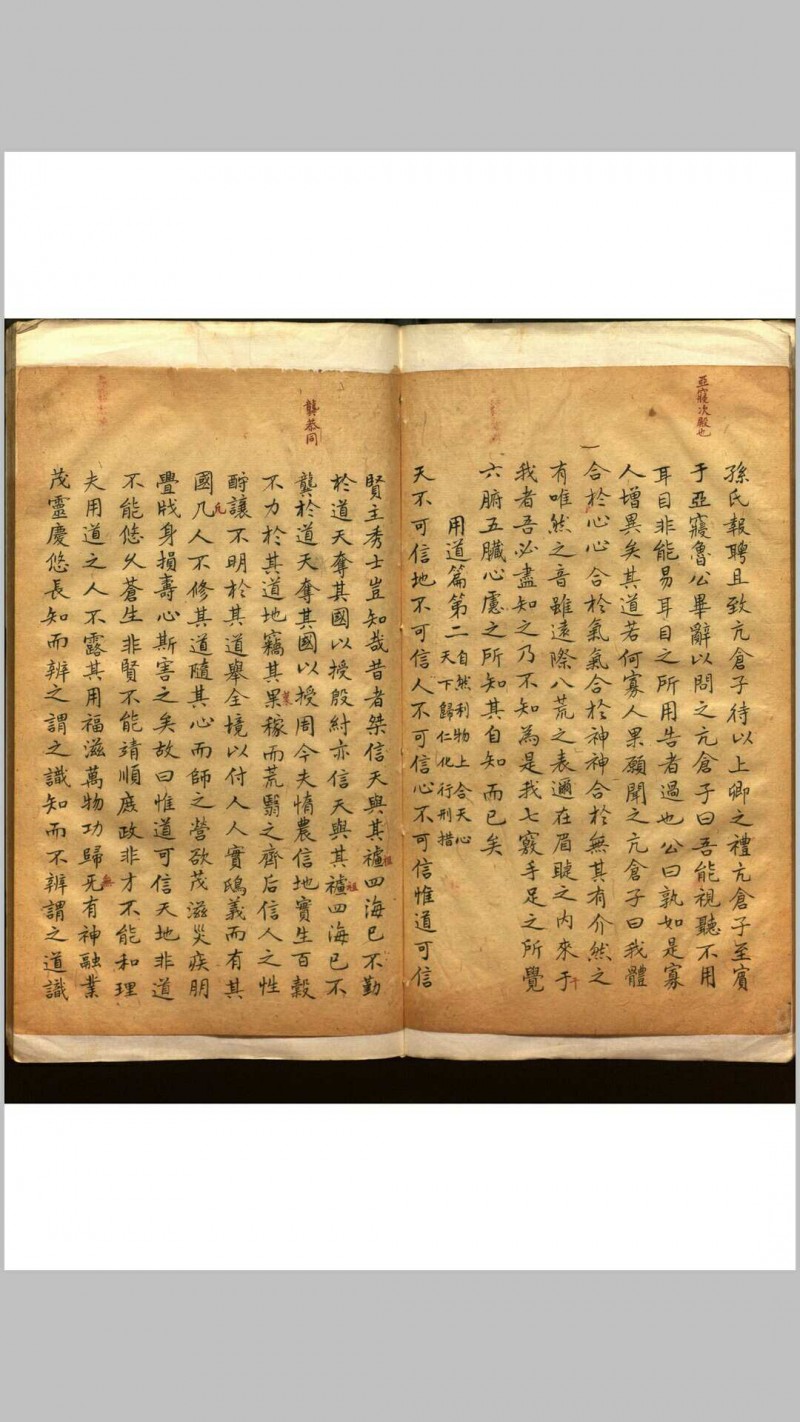 亞寢次殿也
孫氏報聘且致亢倉子待以上卿之禮亢倉子至賓
于亞寢魯公畢辭以問之亢倉子曰吾能視聽不用
耳目非能易耳目之所用告者過也公曰孰如是寡
人增異矣其道若何寡人果願聞之亢倉子曰我體
合於心心合於氣氣合於神神合於無其有介然之
有唯然之音雖遠際八荒之表邇在眉睫之內來于
我者吾必盡知之乃不知為是我七竅手足之所覺
六腑五臟心慮之所知其自知而已矣
用道篇第二
自然利物上合天心
天下歸仁化行刑措
天不可信地不可信人不可信心不可信惟道可信
龔恭同
賢主秀士豈知哉昔者桀信天與其禚四海已不勤
於道天奪其國以授殷紂亦信天與其禚四海已不
龔於道天奪其國以授周今夫惰農信地實生百穀
不力於其道地竊其果稼而荒翳之齊后信人之性
酧讓不明於其道舉全境以付人人實鴟義而有其
國凡人不修其道隨其心而師之營欲茂滋災疾朋
疊戕身損壽心斯害之矣故曰惟道可信天地非道
不能悠久蒼生非賢不能靖順庭政非才不能和理
夫用道之人不露其用福滋萬物功歸旡有神融業
茂靈慶悠長知而辨之謂之識知而不辨謂之道識